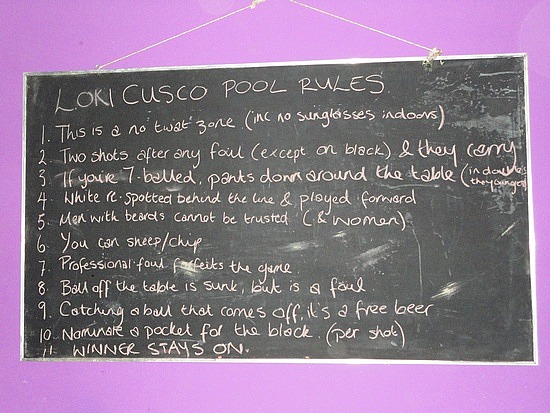 LOKI CUSCO POOL RULES
1. This is a no twat zone (inc no sunglasses indoors)
2. Two shots after any foul (except on black) & they carry
3. If you're 7-balled, pants down around the table (in doubles
4. White re-spotted behind the line & played forward
5. Men with beards cannot be trusted (& women)
6. You can sheep/chip
7. Professional foul forfeits the game
8. Ball off the table is sunk, but is a foul
9. Catching a ball that comes off, it's a free beer
10. Nominate a pocket for the black. (per shot)
11. WINNER STAYS ON.